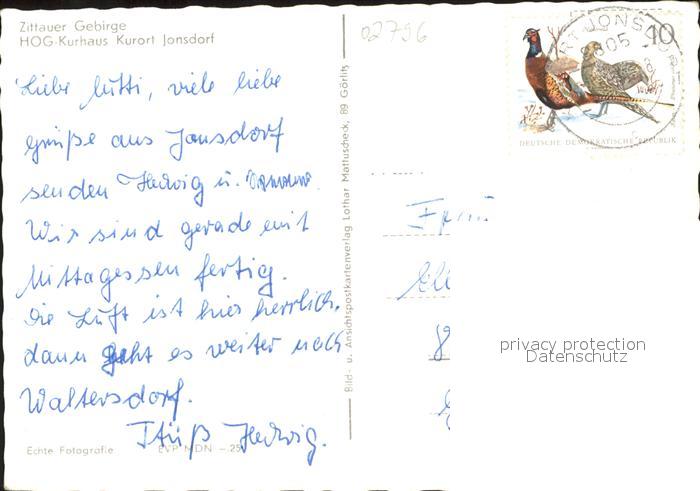 Zittauer Gebirge
HOG-Kurhaus Kurort Jonsdorf
Liebe Mutti, viele liebe
Grüße aus Jonsdorf
senden Hedwig u.
Wir sind gerade mit
Mittagessen fertig.
Die Luft ist hier herrlich.
dann geht es weiter nach
Waltersdorf.
Hedwig.
Echte Fotografie EVP MDN –.25
Bild- u. Ansichtspostkartenverlag Lothar Mattuscheck, 89 Görlitz
02796
10
DEUTSCHE DEMOKRATISCHE REPUBLIK
Frau
privacy protection
Datenschutz